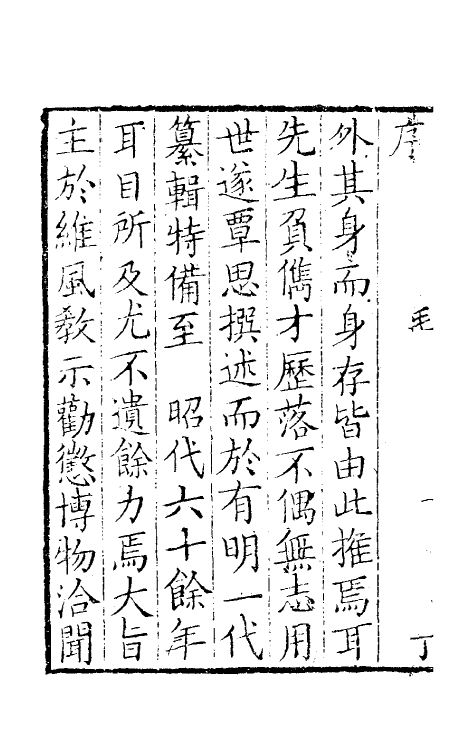 序 毛 一 丁
外其身而身存皆由此推焉耳
先生負儁才歷落不偶無志用
世遂覃思撰述而於有明一代
纂輯特備至 昭代六十餘年
耳目所及尤不遺餘力焉大旨
主於維風教示勸懲博物洽聞